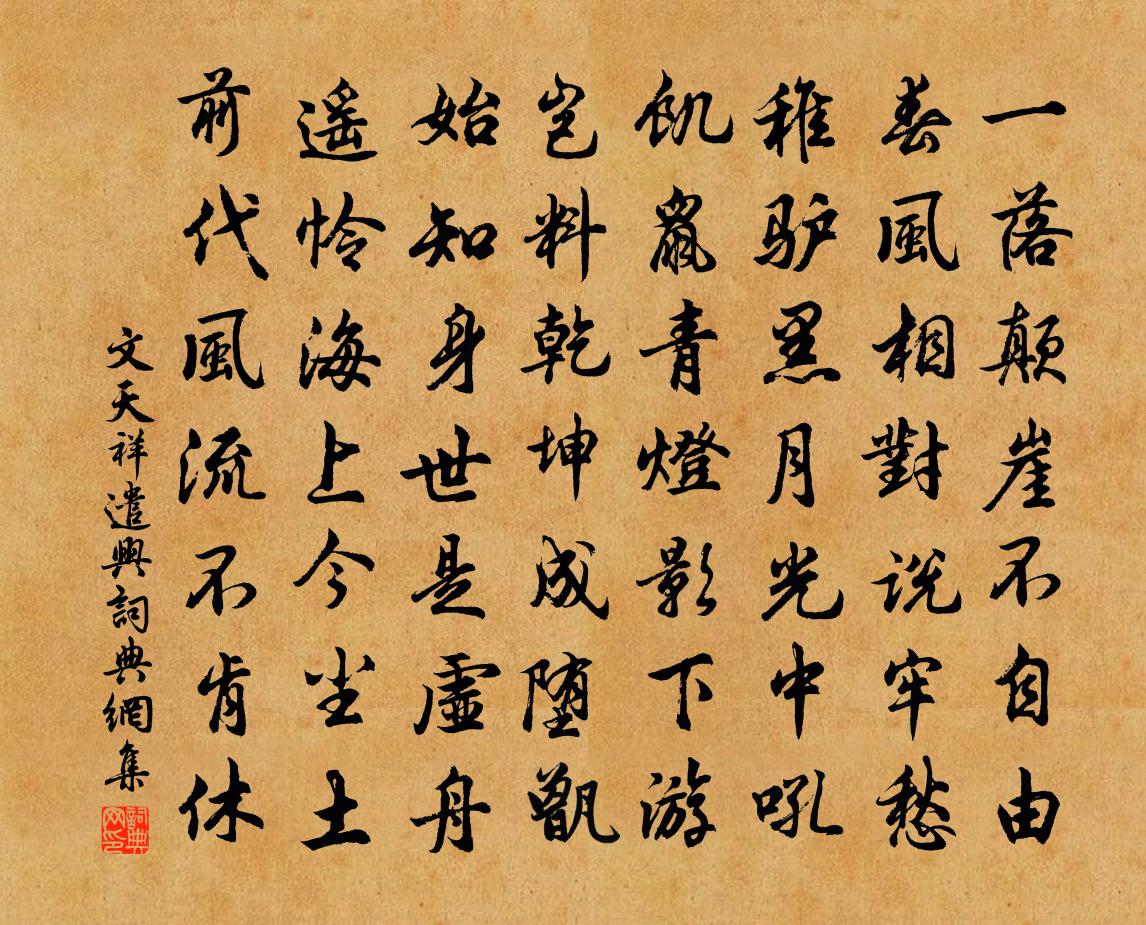 一落颠崖不自由
春風相對説牢愁
稚驴黑月光中吼
飢鼠青燈影下游
豈料乾坤成堕甑
始知身世是虛舟
遥怜海上今尘土
前代風流不肯休
文天祥遣興詞典網集
詞典网印